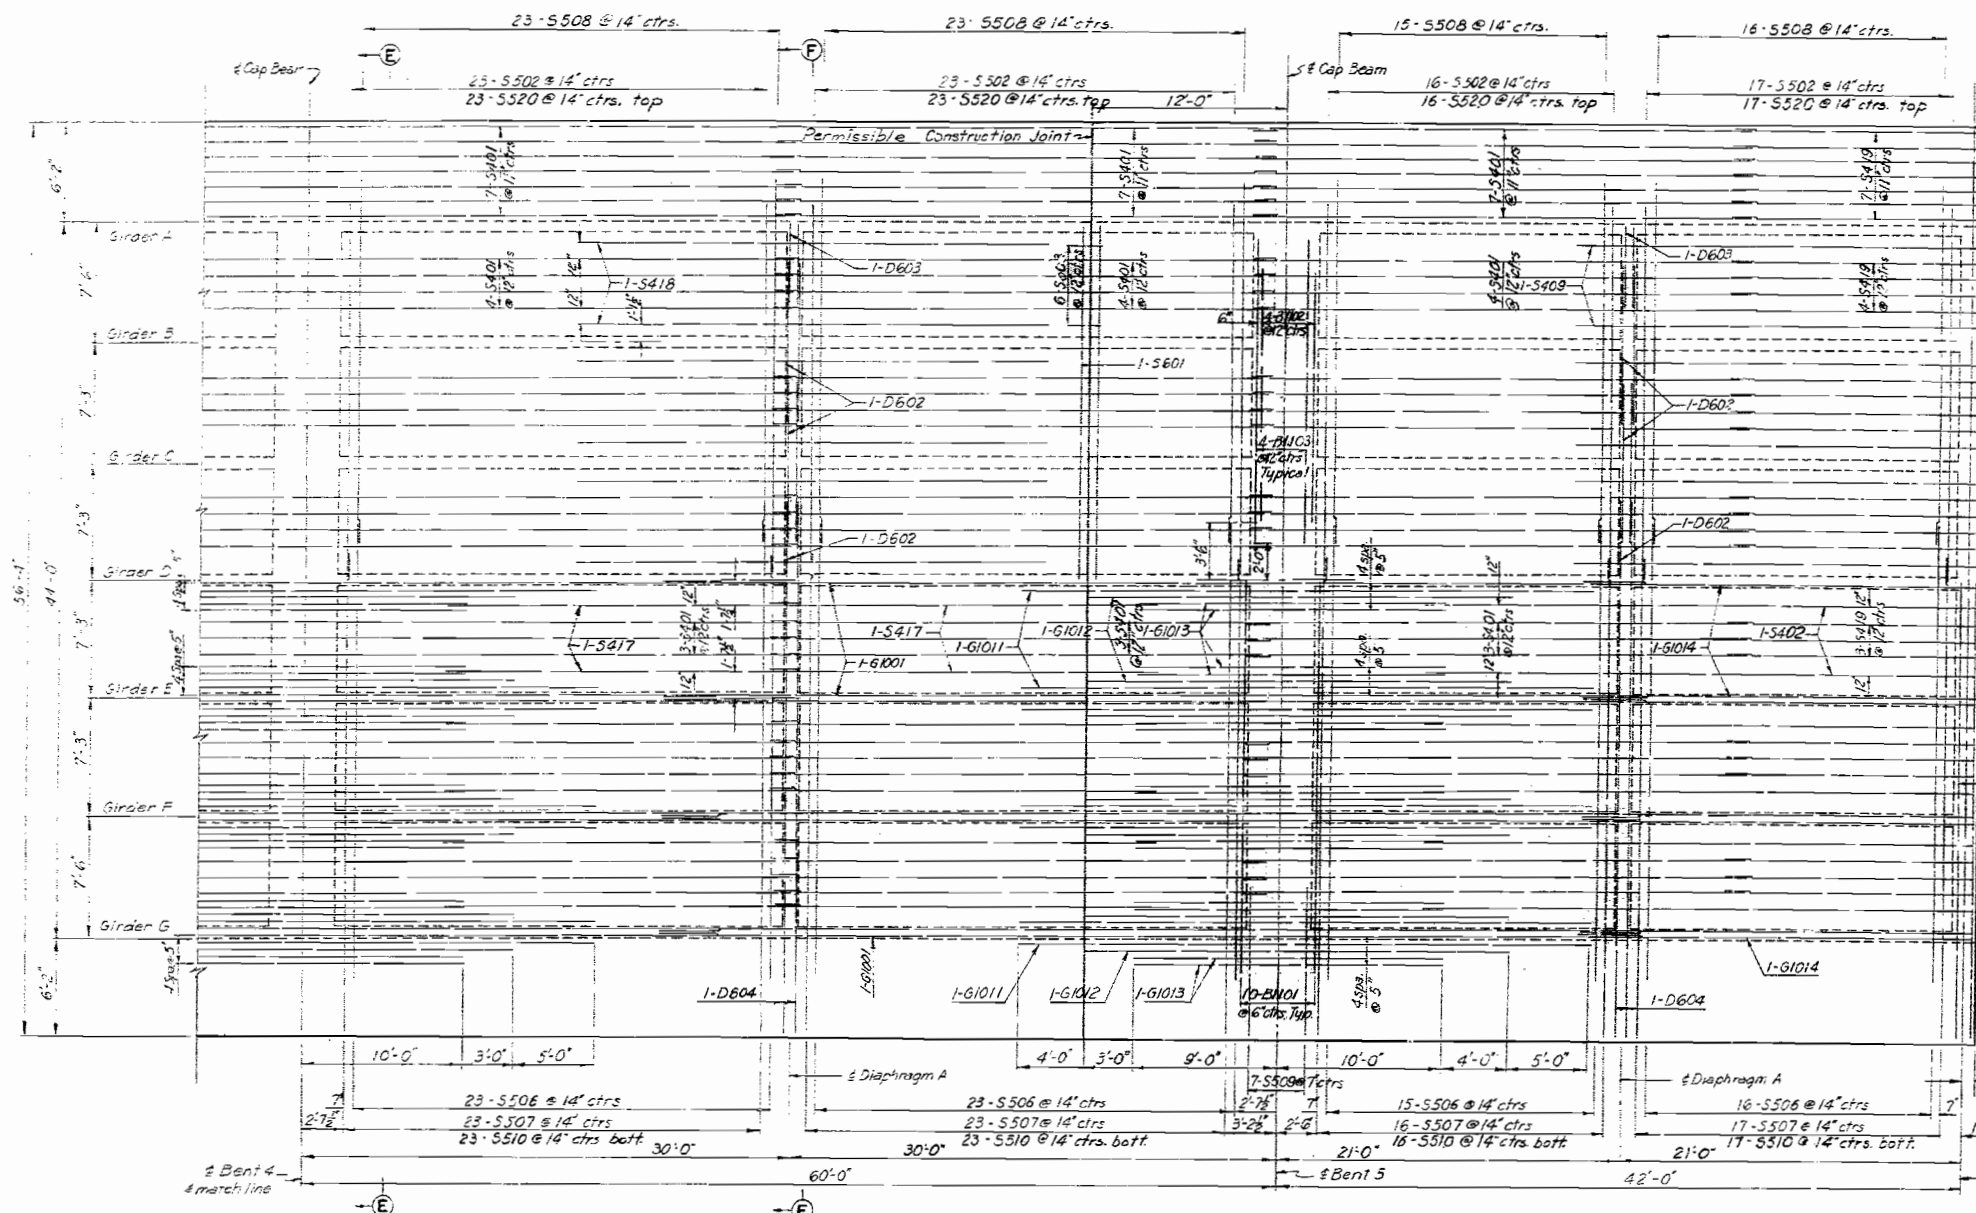 23-S508 @ 14" ctrs.
23-S508 @ 14" ctrs.
15-S508 @ 14" ctrs.
16-S508 @ 14" ctrs.
E
F
℄ Cap Beam
℄ Cap Beam
23-S502 @ 14" ctrs
23-S520 @ 14" ctrs. top
23-S502 @ 14" ctrs
23-S520 @ 14" ctrs. top
12'-0"
16-S502 @ 14" ctrs
16-S520 @ 14" ctrs. top
17-S502 @ 14" ctrs
17-S520 @ 14" ctrs. top
Permissible Construction Joint
6'-2"
7-S401
@ 11" ctrs
7-S401
@ 11" ctrs
7-S401
@ 11" ctrs
7-S419
@ 11" ctrs
Girder A
7'-6"
4-S401
@ 12" ctrs
12"
1-S418
1-D603
4-S401
@ 12" ctrs
4-S401
@ 12" ctrs
1-S409
1-D603
4-S419
@ 12" ctrs
6"
4-B1102
@ 12" ctrs
Girder B
7'-3"
1-S601
1-D602
1-D602
4-B1103
@ 12" ctrs
Typical
Girder C
7'-3"
1-D602
1-D602
3'-6"
2'-0"
4 spa.
@ 5"
12"
Girder D
56'-4"
44'-0"
7'-3"
12"
3-S401
@ 12" ctrs
12"
1-S417
1-S417
1-G1001
1-G1011
1-G1012
3-S401
@ 12" ctrs
1-G1013
4 spa.
@ 5"
12"
3-S401
@ 12" ctrs
1-G1014
1-S402
12"
3-S419
@ 12" ctrs
12"
Girder E
7'-3"
Girder F
7'-6"
Girder G
6'-2"
4 spa @ 5"
1-D604
1-G1001
1-G1011
1-G1012
1-G1013
10-B1101
@ 6" ctrs. Typ.
4 spa.
@ 5"
1-G1014
1-D604
10'-0"
3'-0"
5'-0"
4'-0"
3'-0"
9'-0"
10'-0"
4'-0"
5'-0"
℄ Diaphragm A
7-S509 @ 7" ctrs
℄ Diaphragm A
7"
23-S506 @ 14" ctrs
23-S506 @ 14" ctrs
2'-7½"
7"
15-S506 @ 14" ctrs
16-S506 @ 14" ctrs
7"
2'-7½"
23-S507 @ 14" ctrs
23-S507 @ 14" ctrs
3'-2½"
2'-6"
16-S507 @ 14" ctrs
17-S507 @ 14" ctrs
23-S510 @ 14" ctrs bott.
23-S510 @ 14" ctrs. bott.
16-S510 @ 14" ctrs. bott.
17-S510 @ 14" ctrs. bott.
30'-0"
30'-0"
21'-0"
21'-0"
℄ Bent 4
& match line
60'-0"
℄ Bent 5
42'-0"
E
F